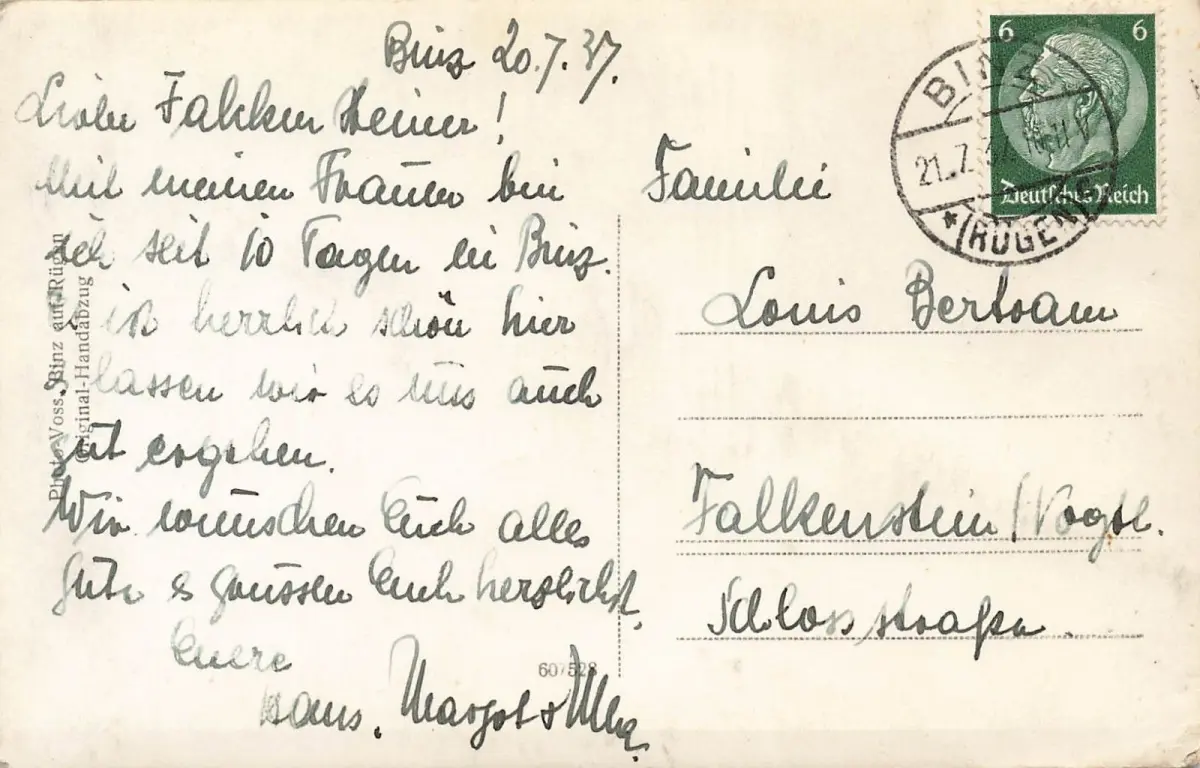 Binz 20.7.37.
Liebe Falkensteiner!
Mit meinen Frauen bin
ich seit 10 Tagen in Binz.
Es ist herrlich schön hier
& lassen wir es uns auch
gut ergehen.
Wir wünschen Euch alles
Gute & grüssen Euch herzlichst,
Euere
Hans, Margot &
Familie
Louis Bertram
Falkenstein/Vogtl.
Schlosstraße.
6 6
Deutsches Reich
BINZ
21.7.37
*(RÜGEN)
Photo-Voss, Binz auf Rügen
Original-Handabzug
607528